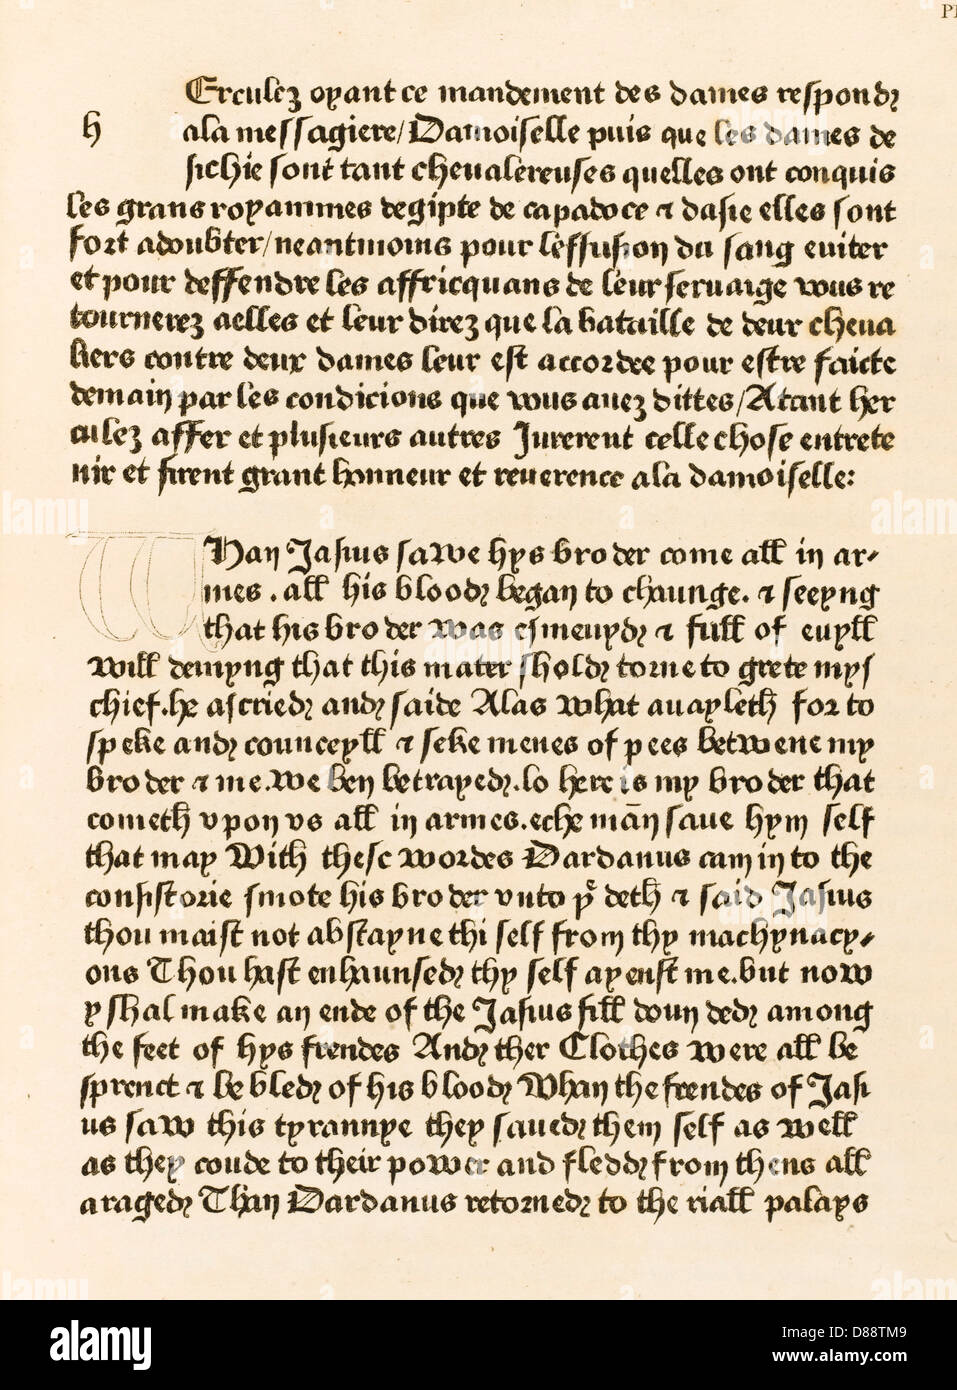 PL
Erculez oyant ce mandement des dames respondy
h
a la messagiere/ Damoiselle puis que les dames de
sichie sont tant cheualereuses quelles ont conquis
les grans royammes degipte de capadoce ⁊ dasie elles sont
fort adoubter/ neantmoins pour leffusion du sang euiter
et pour deffendre les affricquans de leur seruaige vous re
tournerez aelles et leur direz que la bataille de deux cheua
liers contre deux dames leur est accordee pour estre faicte
demain par les condicions que vous auez dittes/ Atant her
culez affer et plusieurs autres Jurerent celle chose entrete
nir et firent grant honneur et reuerence a la damoiselle:
WHan Jasius sawe hys broder come all in ar-
mes . all his blood began to chaunge. ⁊ seeyng
that his broder was esmeuyd ⁊ full of euyll
will demyng that this mater shold torne to grete mys
chief. he ascried and saide Alas what auayleth for to
speke and counceyll ⁊ seke menes of pees betwene my
broder ⁊ me. we ben betrayed. lo here is my broder that
cometh vpon vs all in armes. eche man saue hym self
that may With these wordes Dardanus cam in to the
consistorie smote his broder vnto þe deth ⁊ said Jasius
thou maist not abstayne thi self from thy machynacy-
ons Thou hast enhaunsed thy self ayenst me. but now
y shal make an ende of the Jasius fill doun ded among
the feet of hys frendes And ther Clothes were all be
sprenct ⁊ be bled of his blood Whan the frendes of Jasi
us saw this tyrannye they saued them self as well
as they coude to their power and fledd from thens all
araged Than Dardanus retorned to the riall palays
alamy
D88TM9
www.alamy.com